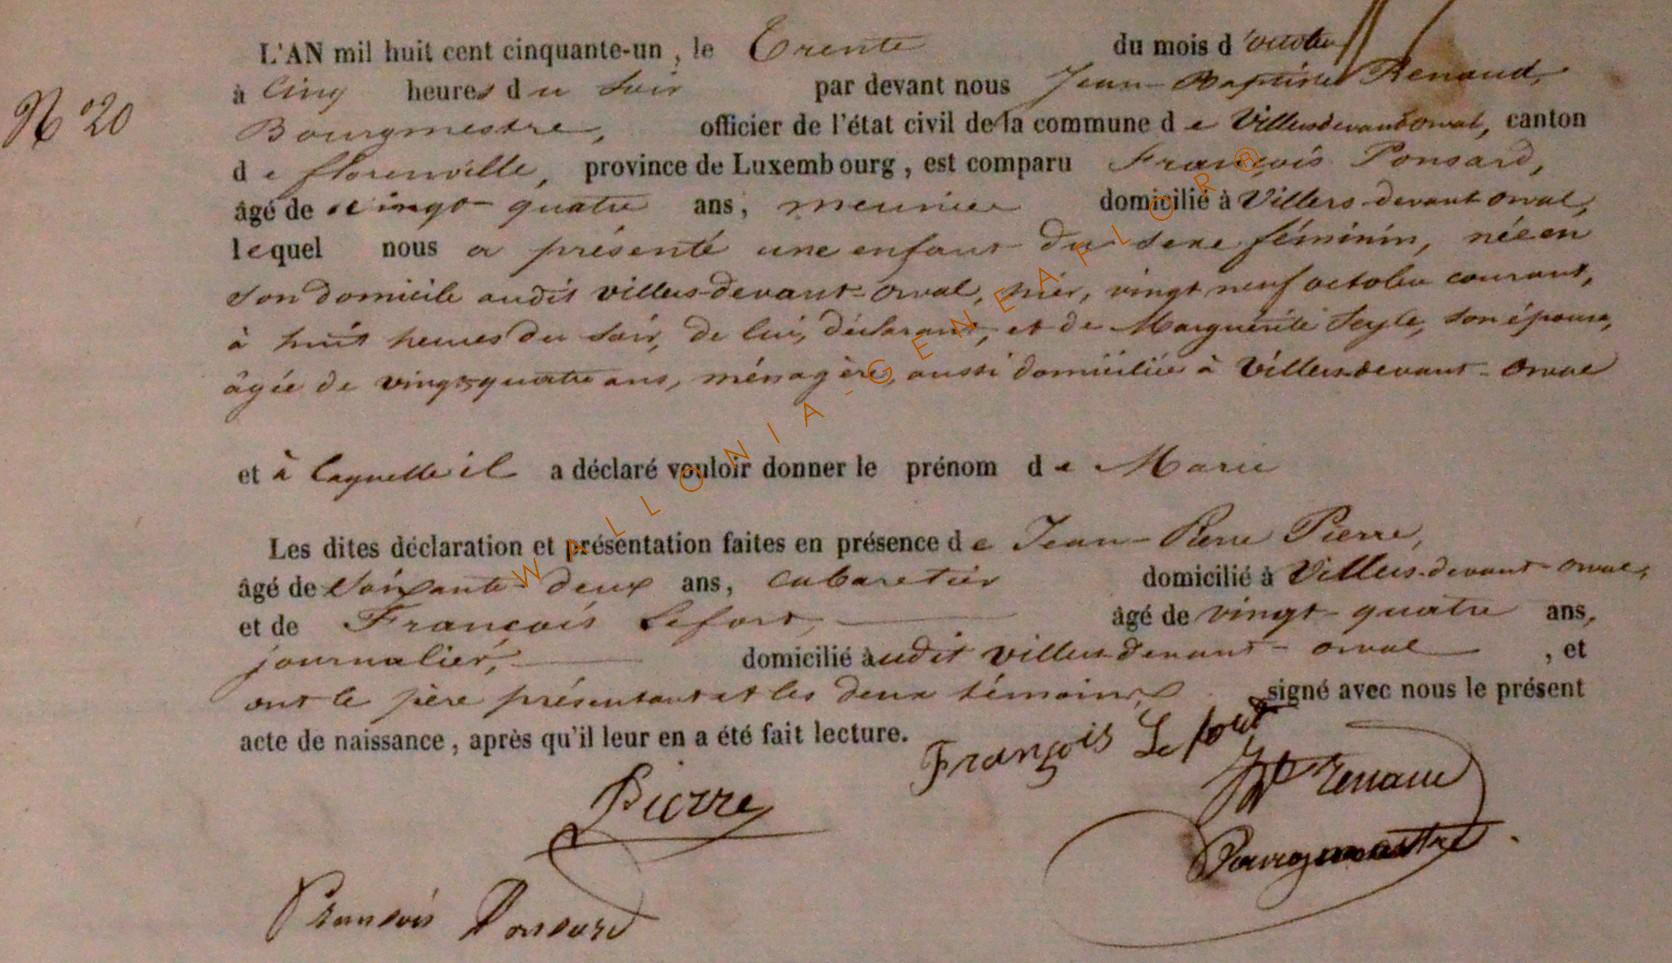 L'AN mil huit cent cinquante-un, le Trente du mois d'octobre
à Cinq heures du Soir par devant nous Jean-Baptiste Renaud,
N° 20
Bourgmestre, officier de l'état civil de la commune de Villers devant orval, canton
de florenville, province de Luxembourg, est comparu François Ponsard,
âgé de vingt quatre ans, meunier domicilié à Villers-devant orval,
lequel nous a présenté une enfant du sexe féminin, née en
son domicile audit villers-devant-orval, hier, vingt neuf octobre courant,
à huit heures du soir, de lui, déclarant, et de Marguérite Seyle, son épouse,
âgée de vingt-quatre ans, ménagère, aussi domiciliée à Villers-devant-orval
et à laquelle il a déclaré vouloir donner le prénom de Marie
Les dites déclaration et présentation faites en présence de Jean-Pierre Pierre,
âgé de Soixante deux ans, cabaretier domicilié à Villers-devant-orval,
et de François Lefort, âgé de vingt-quatre ans,
journalier, domicilié audit villers-devant-orval, et
ont le père présentant et les deux témoins, signé avec nous le présent
acte de naissance, après qu'il leur en a été fait lecture.
François Lefort
Pierre
JBte Renaud
Bourgmestre
François Ponsard
WALLONIA-GENEAFLOR®